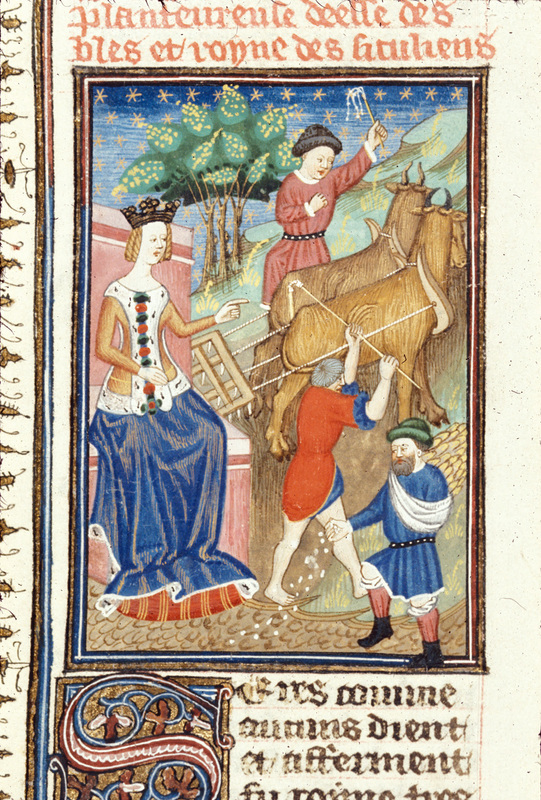 planteureuse deesse des
bles et royne des siciliens
Ceres comme
aucuns dient
et afferment
fu royne tres